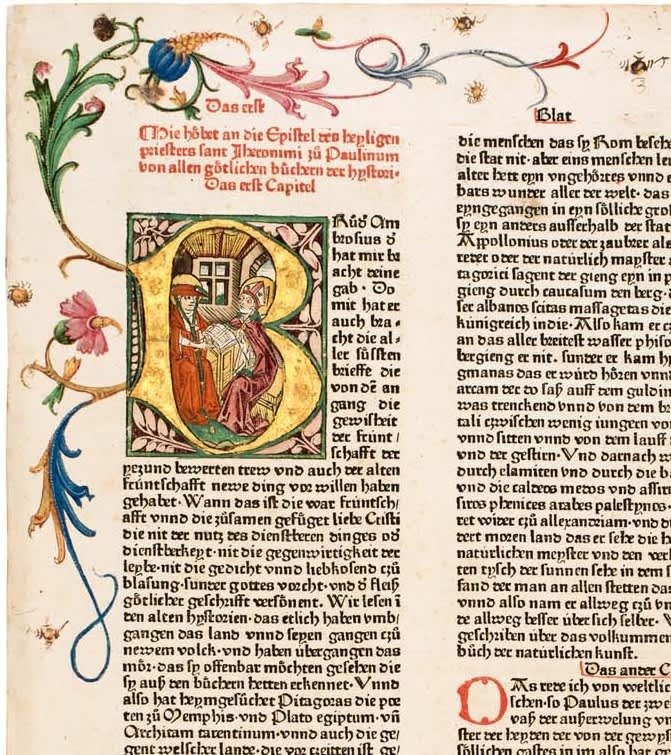 Das erst
Hie hebet an die Epistel des heyligen
priesters sant Jheronimi zů Paulinum
von allen götlichen bůchern der hystori·
Das erst Capitel
Růd' Am
brosius d'
hat mir be
acht deine
gab · Do
mit hat er
auch bra⸗
cht die al⸗
ler süssten
brieffe die
von dē an
gang die
gewißheit
der frünt /
schafft der
yezund bewerten trew vnd auch der alten
früntschafft newe ding vor willen haben
gehabet· Wann das ist die war früntsch/
afft vnnd die zůsamen gefüget liebe Cristi
die nit der nutz des dienstberen dinges od'
dienstberkeyt·nit die gegenwirtigkeit der
leybe·nit die gedicht vnnd liebkosend czů
blasung·sunder gottes vorcht·vnd d' fleiß
götlicher geschrifft versönent. Wir lesen ī
den alten hystorien·das etlich haben vmb/
gangen das land vnnd seyen gangen czů
newem volck·vnd haben übergangen das
mör·das sy offenbar möchten gesehen die
sy auß den bůchern hetten erkennet·Vnnd
also hat heymgesůchet Pitagoras die poe
ten zů Memphis·vnd Plato egiptum·vn̄
Architam tarentinum·vnnd auch die ge/
gent welscher lande·die vor czeitten ist ge/
Blat
die menschen das sy Rom besehe
die stat nit·aber eins menschen
alter hett eyn vngehörtes vnnd
bars wunder aller der welt·das
eyngegangen in eyn söllich
sy eyn anders ausserhalb der stat
Appollonius oder der zaubrer
redet oder der natürlich mayster
tagorici sagent der gieng eyn in
gieng durch caucasum den berg·
ser albanos scitas massagetas die
künigreich indie·Also kam er
an das aller breitest wasser
bergieng er nit. sunder er kam
gmanas das er würd hören
arcam der do saß auff dem guldin
was trenckend vnnd von dem
tali czwischen wenig iungern
vnnd sitten vnnd von dem lauff
vnd der gestirn·Vnd darnach
durch elamiten vnd durch die
vnd die caldeos medos vnd
siros phenices arabes palestynos·
ret wider czů allexandriam·vnd
dert moren land das er sehe die
natürlichen meyster vnd den
ten tysch der sunnen sehe in dem
fand der man an allen stetten das
vnnd also nam er allweg czů
de allweg besser über sich selber·
geschriben über das volkummen
bůch der natürlichen kunst.
Das ander C
As rede ich von
schen·so Paulus der
vaß der außerwelung
ster der heyden der von der
söllichen gastes im im also hat